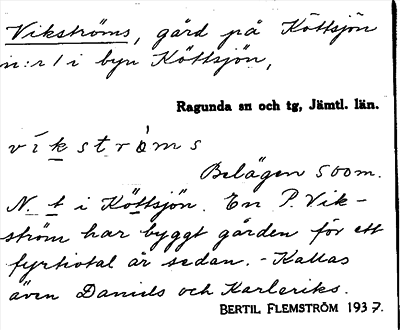 Vikströms, gård på Köttsjön
n:r 1 i byn Köttsjön,
Ragunda sn och tg, Jämtl. län.
víkstrὸms
Belägen 500 m.
N. t i Köttsjön. En P. Vik-
ström har byggt gården för ett
fyrtiotal år sedan. - Kallas
även Daniels och Karleriks.
BERTIL FLEMSTRÖM 1937.